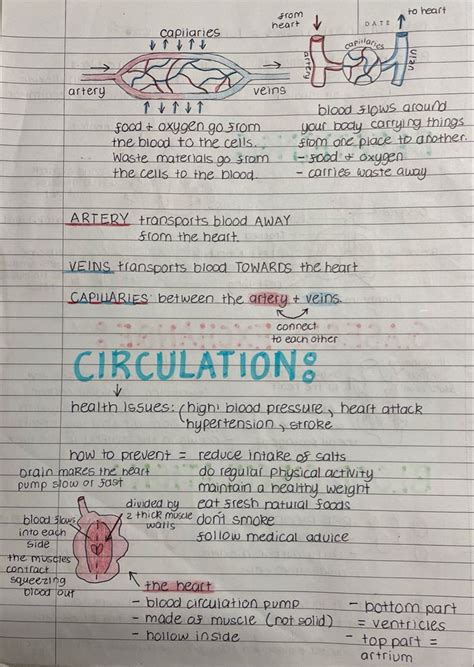 from heart
DATE
to heart
capillaries
artery
veins
artery
capillaries
food + oxygen go from
the blood to the cells.
Waste materials go from
the cells to the blood.
blood flows around
your body carrying things
from one place to another.
- food + oxygen
- carries waste away
ARTERY transports blood AWAY
from the heart.
VEINS transports blood TOWARDS the heart
CAPILLARIES between the artery + veins.
connect
to each other
CIRCULATION:
health issues: (high blood pressure, heart attack
hypertension, stroke
how to prevent = reduce intake of salts
do regular physical activity
maintain a healthy weight
eat fresh natural foods
don't smoke
follow medical advice
brain makes the heart
pump slow or fast
divided by
2 thick muscle
walls
blood flows
into each
side
the muscles
contract
squeezing
blood out
the heart
- blood circulation pump
- made of muscle (not solid)
- hollow inside
- bottom part
= ventricles
- top part =
artrium